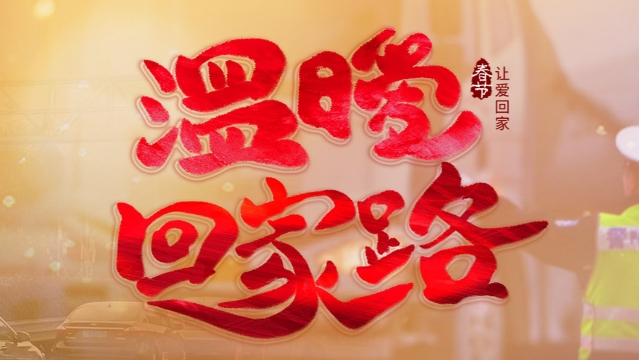 温暖
回家路
春节
让爱回家